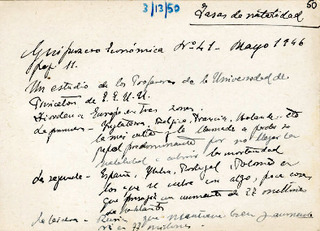 3/13/50
50
Tasas de natalidad
Guipuzcoa Económica Nº 41 - Mayo 1946
pag 11.
Un estudio de los Profesores de la Universidad de
Princeton de E.E.U.U.
Dividen a Europa en tres zonas.
La primera - Inglaterra, Belgica, Francia, Holanda, etc
la más culta y la llamada a perder su
papel predominante por no llegar la
natalidad a cubrir la mortandad
La segunda - España, Italia, Portugal, Polonia en
los que se cubre en
que un aumento de 27 millones
de habitantes
La tercera - Rusia que mantiene
en 77 millones.